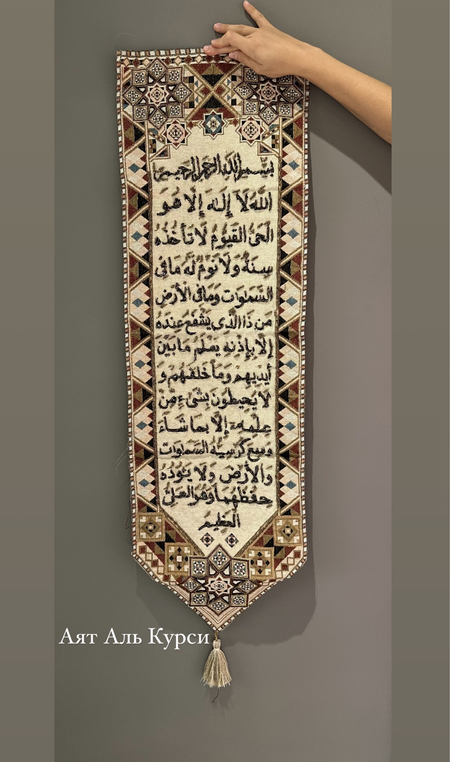 بسم الله الرحمن الرحيم
الله لا إله إلا هو
الحي القيوم لا تأخذه
سنة ولا نوم له ما في
السموات وما في الأرض
من ذا الذي يشفع عنده
إلا بإذنه يعلم ما بين
أيديهم وما خلفهم و
لا يحيطون بشيء من
علمه إلا بما شاء
وسع كرسيه السموات
والأرض ولا يؤده
حفظهما وهو العلي
العظيم
Аят Аль Курси